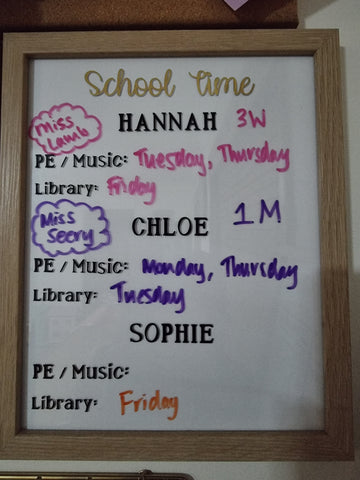 School Time
Miss Lamb
HANNAH 3W
PE / Music: Tuesday, Thursday
Library: Friday
Miss Seery
CHLOE 1M
PE / Music: Monday, Thursday
Library: Tuesday
SOPHIE
PE / Music:
Library: Friday